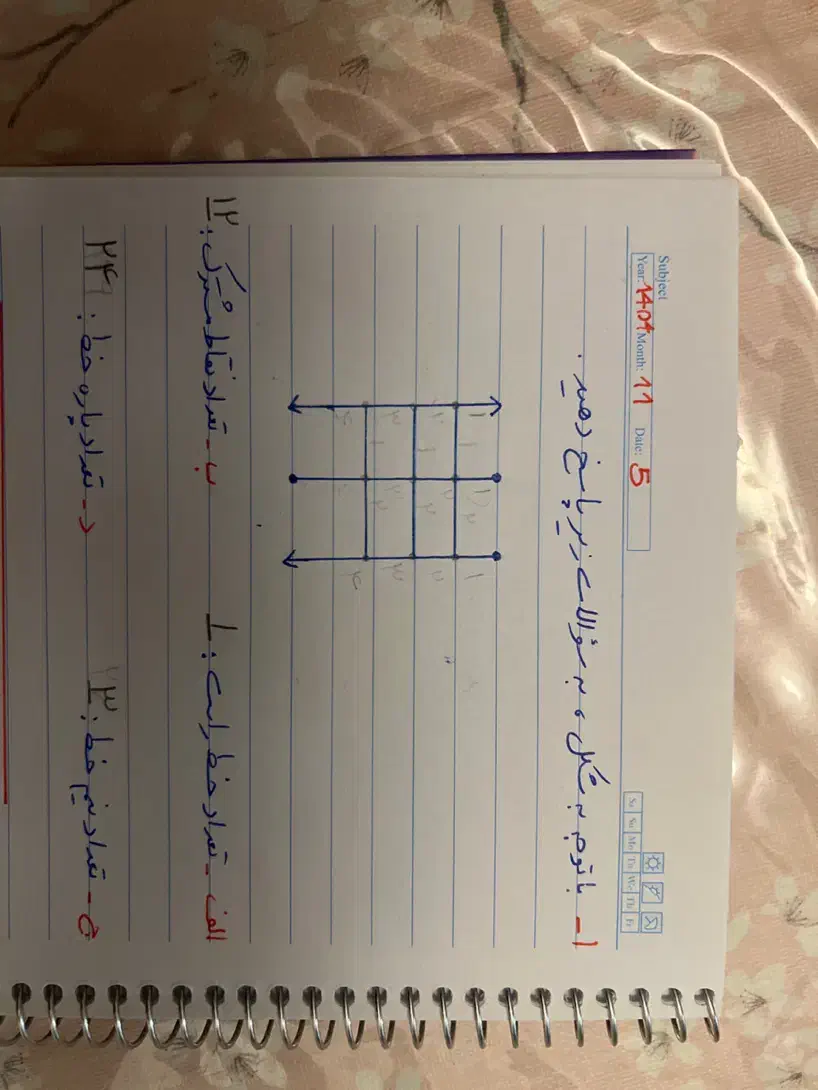 Subject
Year: 1404 Month: 11 Date: 5
Sa Su Mo Tu We Th Fr
۱- با توجه به شکل، به سؤالات زیر پاسخ دهید.
۱ ۱ ۱
۲ ۱ ۲ ۲ ۲
۳ ۱ ۳ ۲ ۳
۴ ۴
الف- تعداد خط راست: ۱ ب- تعداد نقاط مشترک: ۱۲
ج- تعداد نیم خط: ۳ د- تعداد پاره خط: ۲۴